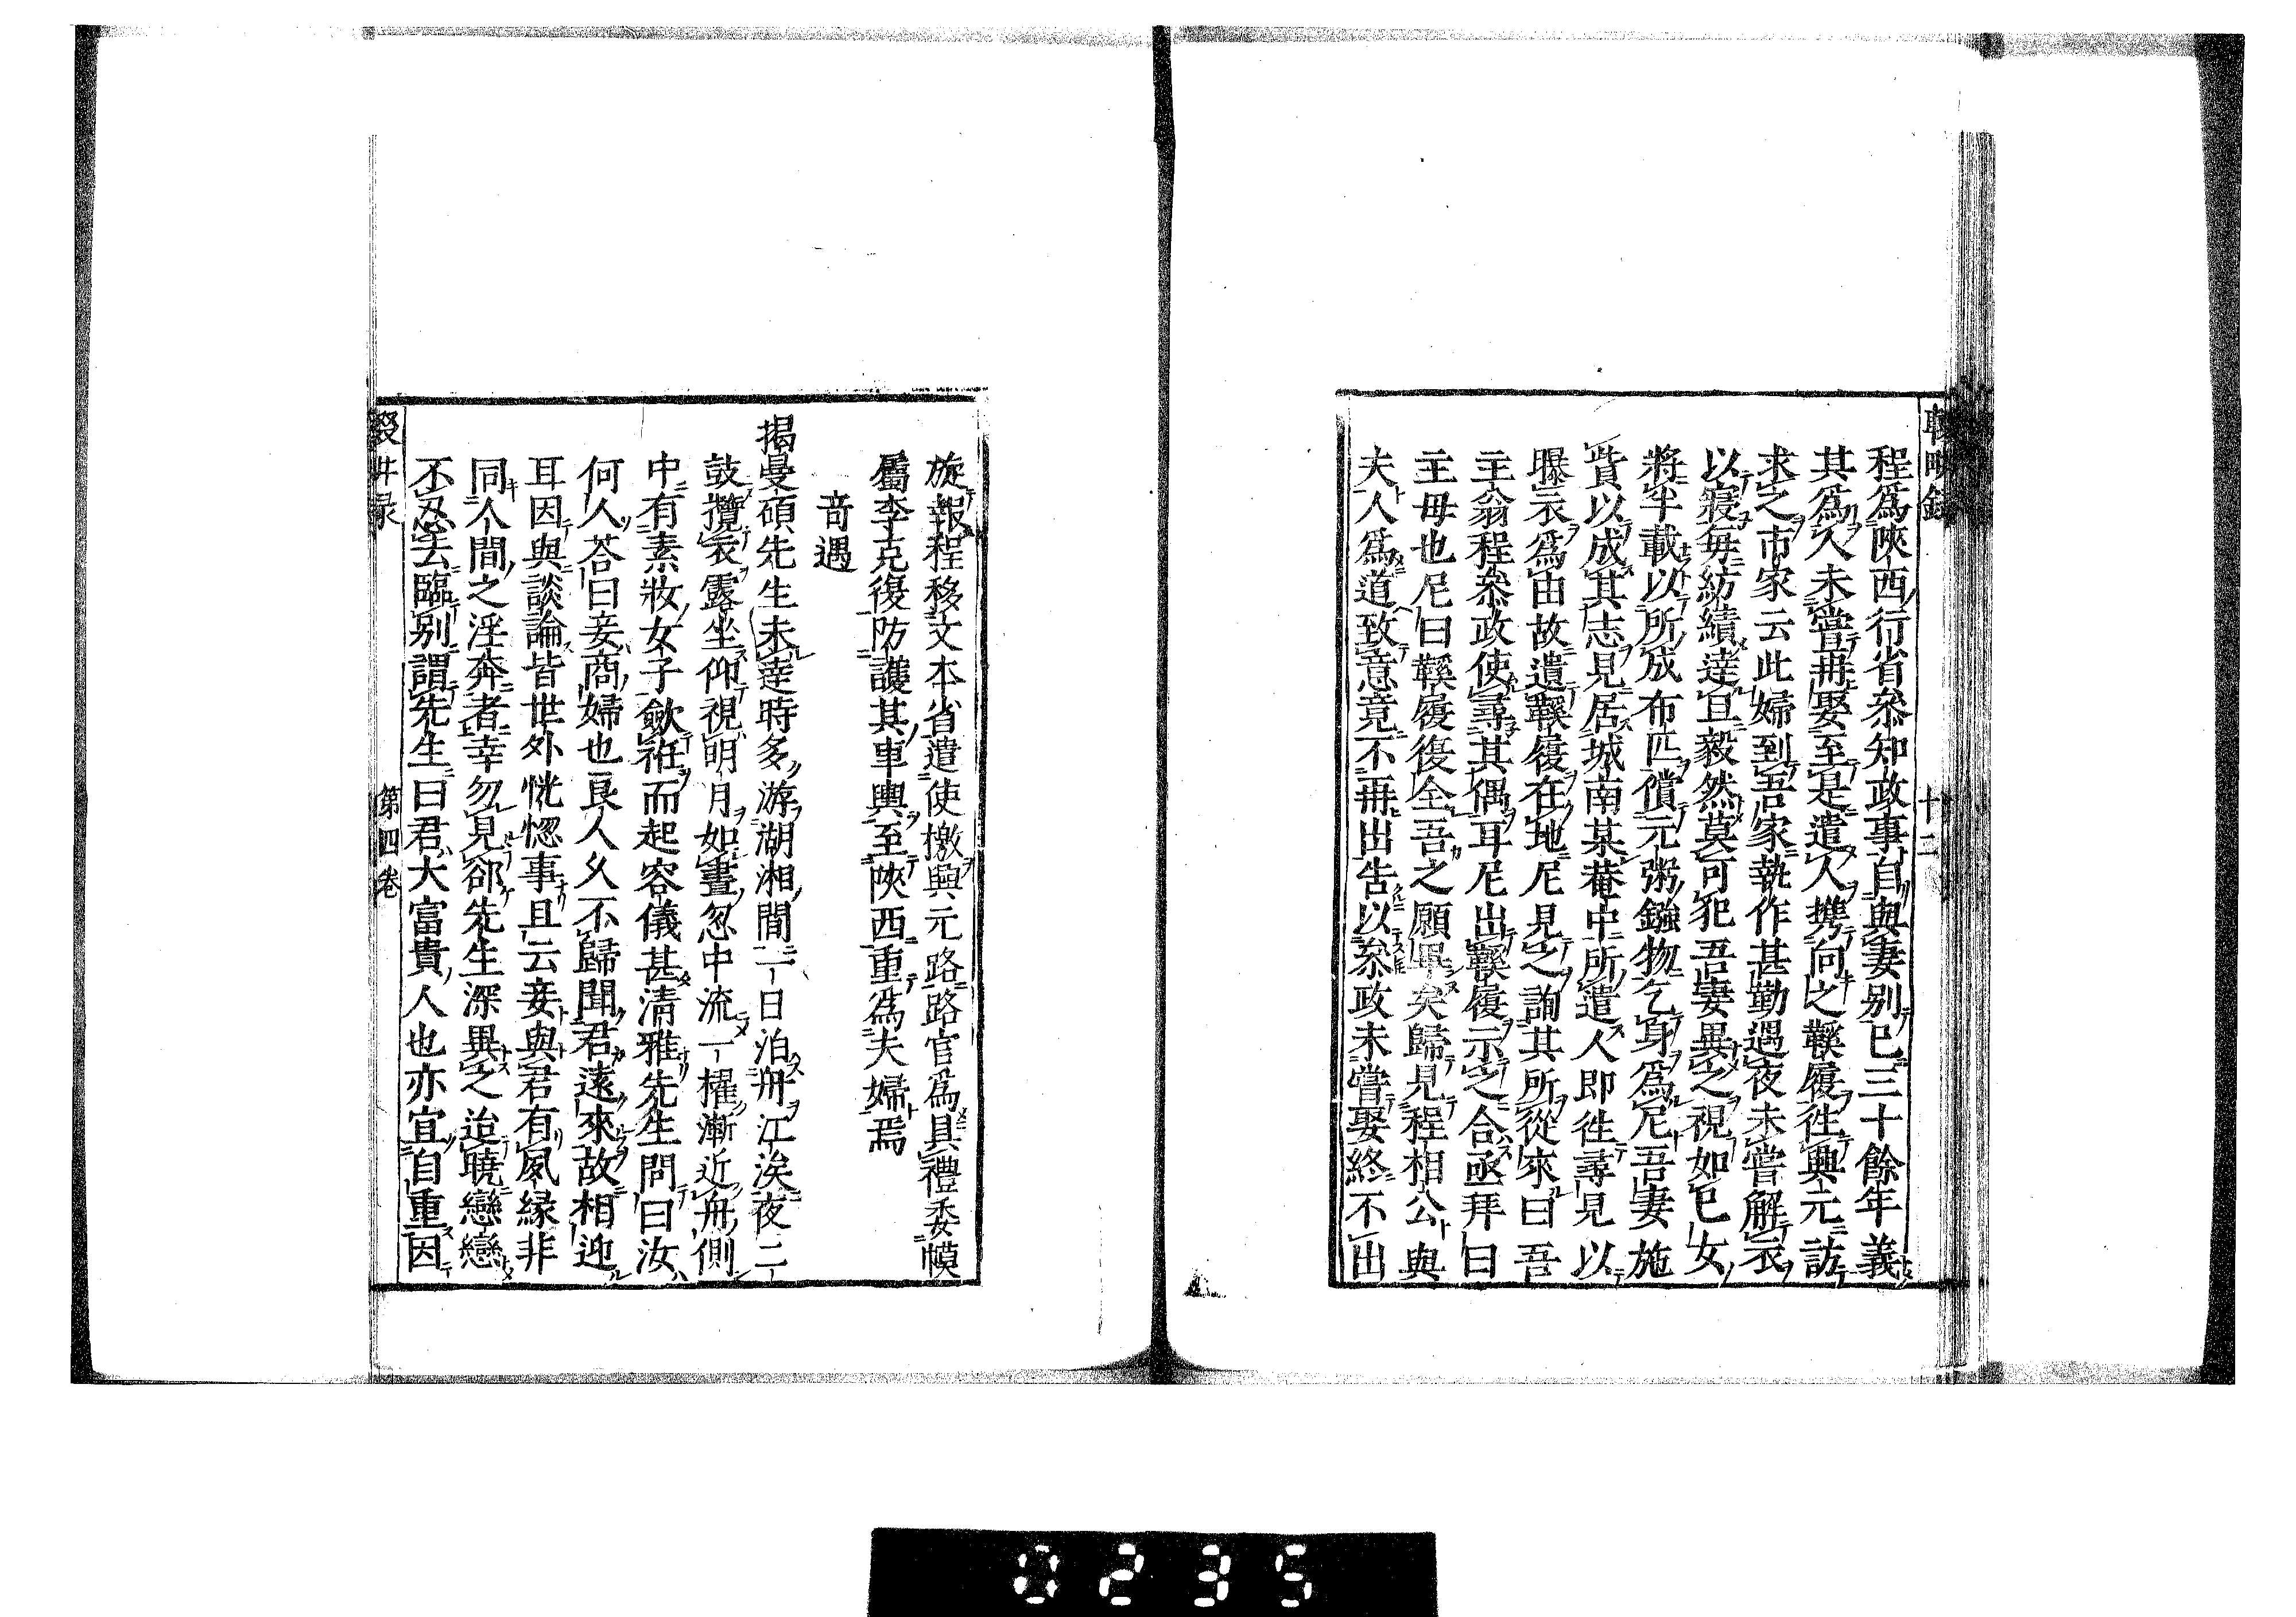 程爲陜西行省叅知政事自與妻别已三十餘年義
其爲人未嘗再娶至是遣人携向之鞵履徃興元訪
求之市家云此婦到吾家執作甚勤遇夜未嘗解衣
以寢毎紡績達旦毅然莫可犯吾妻異之視如已女
將半載以所成布匹償元粥鏹物乞身爲尼吾妻施
貲以成其志見居城南某菴中所遣人即徃尋見以
曝衣爲由故遺鞵履在地尼見之詢其所從來曰吾
主翁程叅政使尋其偶耳尼出鞵履示之合亟拜曰
主母也尼曰鞵履復全吾之願畢矣歸見程相公與
夫人爲道致意竟不再出告以叅政未嘗娶終不出
旋報程移文本省遣使檄興元路路官爲具禮委幙
屬李克復防護其車輿至陜西重爲夫婦焉
竒遇
揭曼碩先生未達時多游湖湘間一日泊舟江涘夜二
鼓攬衣露坐仰視明月如晝忽中流一櫂漸近舟側
中有素妝女子歛袵而起容儀甚清雅先生問曰汝
何人荅曰妾商婦也良人久不歸聞君遠來故相迎
耳因與談論皆世外恍惚事且云妾與君有夙緣非
同人間之淫奔者幸勿見郤先生深異之迨曉戀戀
不忍去臨别謂先生曰君大富貴人也亦宜自重因
第四卷
0235